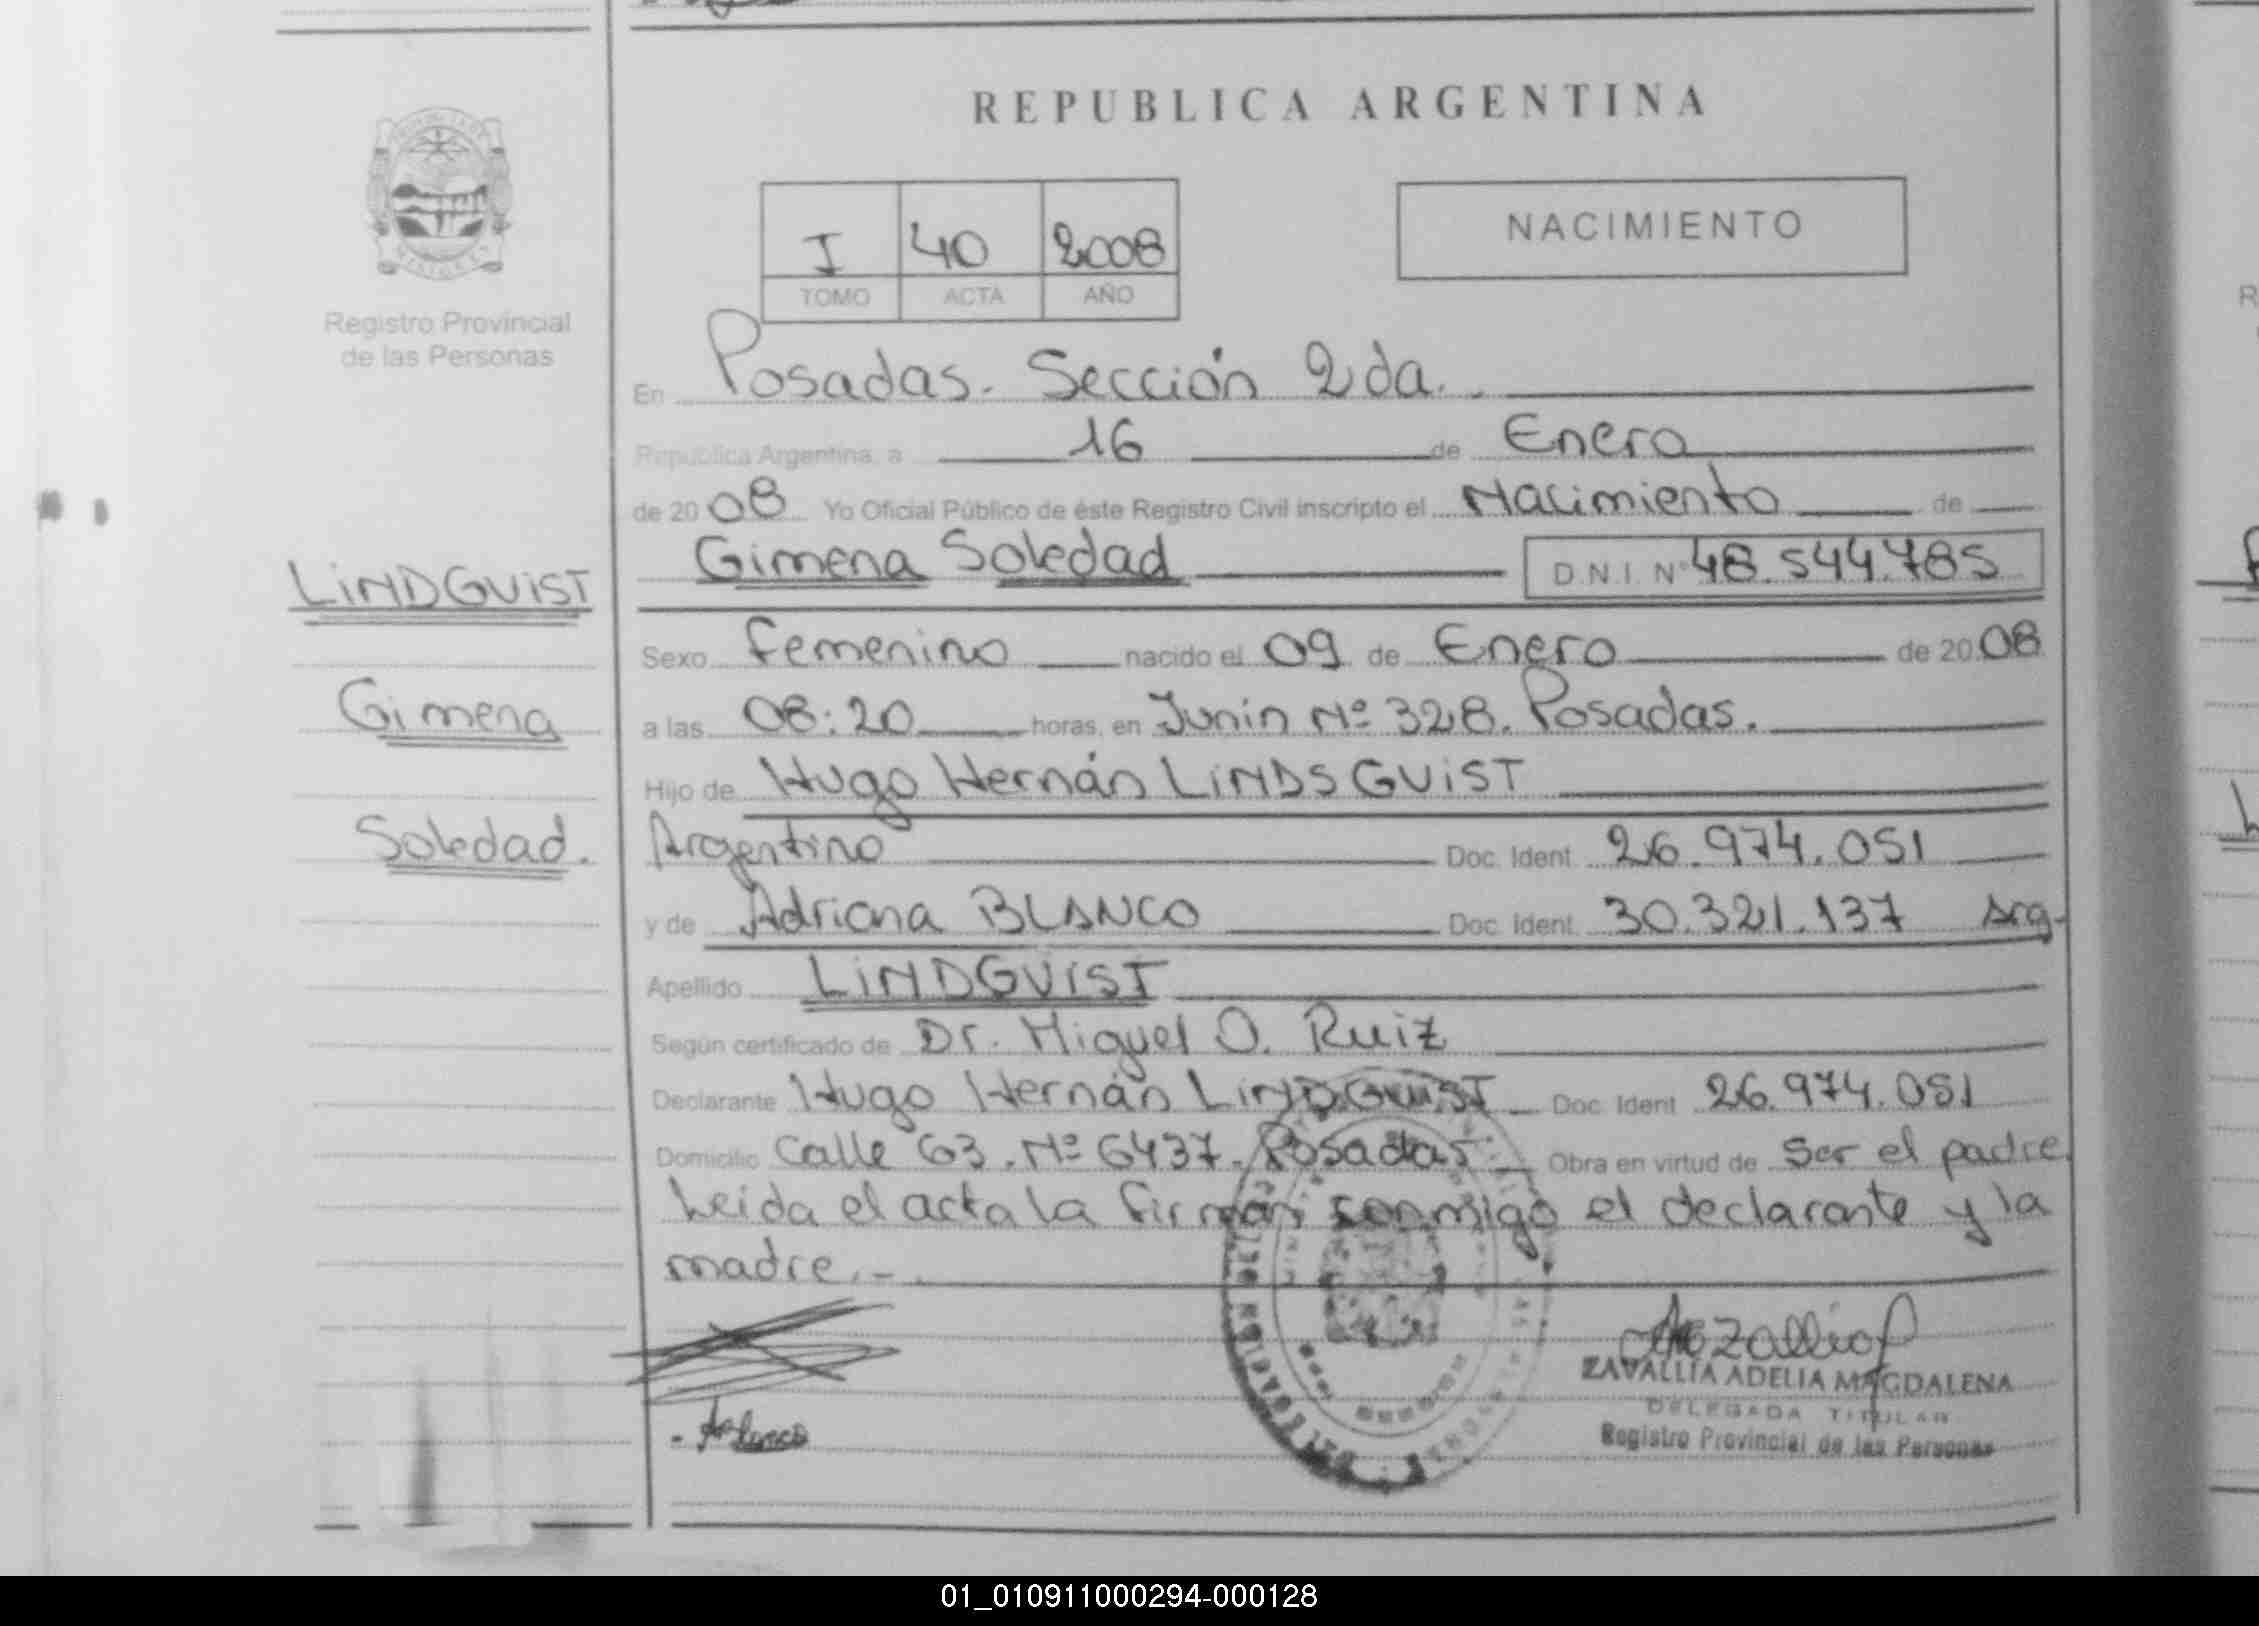 REPUBLICA ARGENTINA
I 40 2008
TOMO ACTA AÑO
NACIMIENTO
Registro Provincial
de las Personas
En Posadas. Sección 2da.
Republica Argentina, a 16 de Enero
de 2008 Yo Oficial Público de éste Registro Civil inscripto el Nacimiento de
Gimena Soledad D.N.I. Nº 48.544.785
LINDGUIST
Gimena
Soledad.
Sexo femenino nacido el 09 de Enero de 2008
a las 08:20 horas, en Junín Nº 328. Posadas.
Hijo de Hugo Hernán LINDSGUIST
Argentino Doc. Ident. 26.974.051
y de Adriana BLANCO Doc. Ident. 30.321.137 Arg-
Apellido LINDGUIST
Según certificado de Dr. Miguel O. Ruiz
Declarante Hugo Hernán LINDGUIST Doc. Ident 26.974.051
Domicilio Calle 63. Nº 6437. Posadas Obra en virtud de Ser el padre
Leida el acta la firman conmigo el declarante y la
madre.-
ZAVALLIA ADELIA MAGDALENA
DELEGADA TITULAR
Registro Provincial de las Personas
01_010911000294-000128